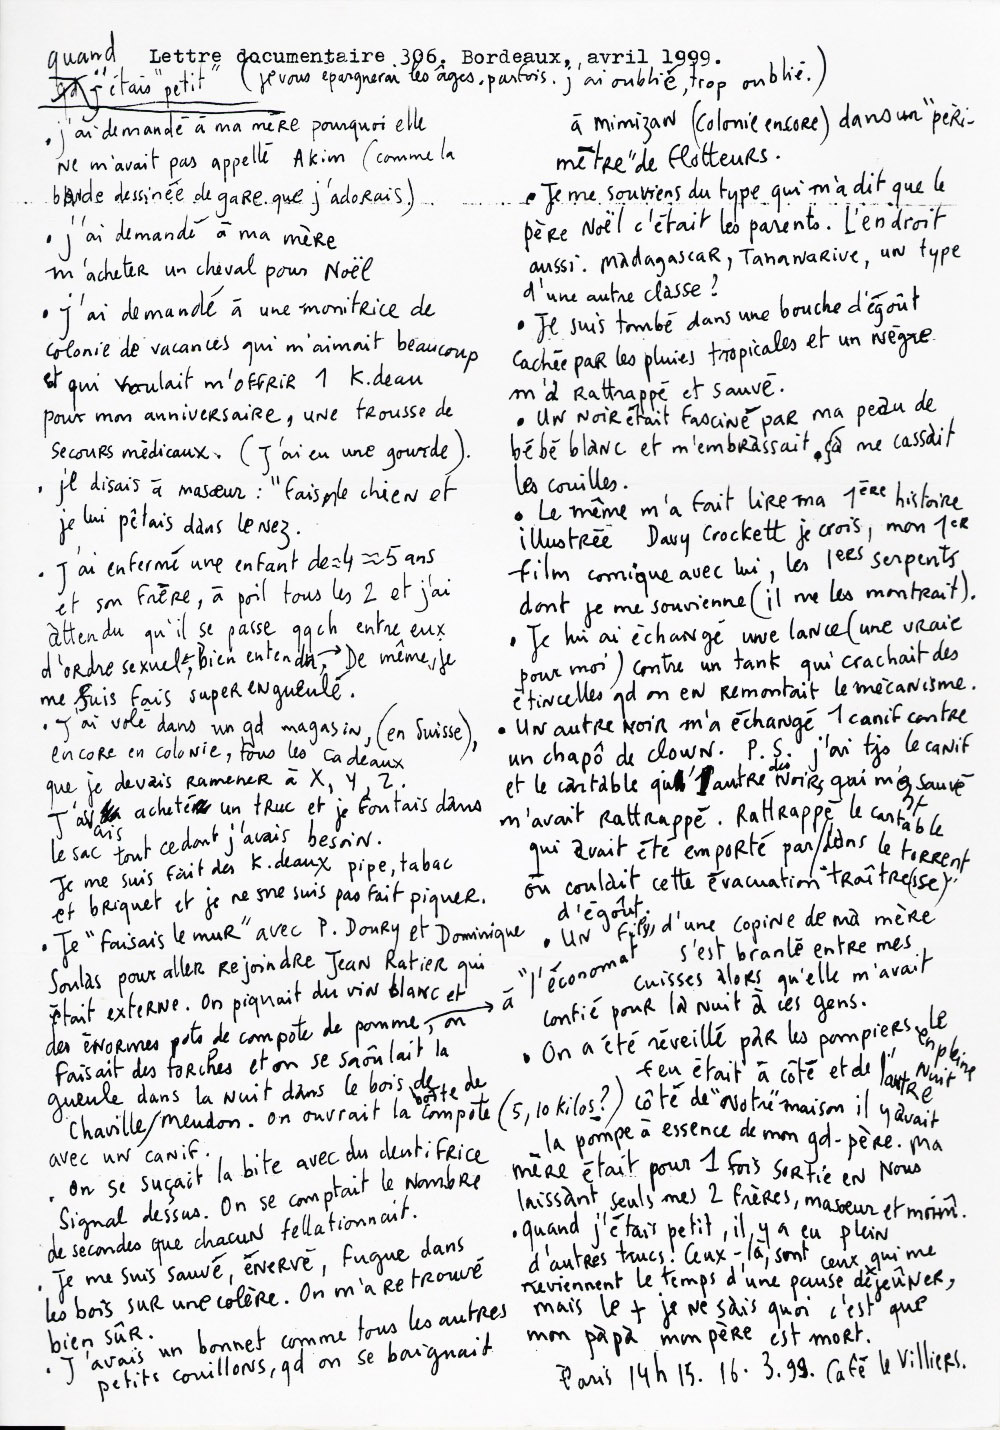 quand Lettre documentaire 306. Bordeaux, avril 1999.
j'étais "petit" (je vous épargnerai les âges. parfois. j'ai oublié, trop oublié.)
. j'ai demandé à ma mère pourquoi elle
ne m'avait pas appellé Akim (comme la
bande dessinée de gare que j'adorais)
• j'ai demandé à ma mère
m'acheter un cheval pour Noël
• j'ai demandé à une monitrice de
colonie de vacances qui m'aimait beaucoup
et qui voulait m'offrir 1 K.deau
pour mon anniversaire, une trousse de
secours médicaux. (j'ai eu une gourde).
. je disais à ma sœur : "fais le chien et
je lui pétais dans le nez.
me suis fais super engueulé.
. J'ai volé dans un gd magasin, (en Suisse),
encore en colonie, tous les cadeaux
que je devais ramener à X, Y, Z.
J'ai acheté un truc et je foutais dans
le sac tout ce dont j'avais besoin.
Je me suis fait des K.deaux pipe, tabac
et briquet et je ne me suis pas fait piquer.
• Je "faisais le mur" avec P. Doury et Dominique
Soulas pour aller rejoindre Jean Ratier qui
était externe. On piquait du vin blanc et
des énormes pots de compote de pomme, on
faisait des torches et on se saoûlait la
gueule dans la nuit dans le bois de
Chaville/Meudon. On ouvrait la boîte de compote (5, 10 kilos?)
avec un canif.
. Je me suis sauvé, énervé, fugue dans
les bois sur une colère. On m'a retrouvé
bien sûr.
. J'avais un bonnet comme tous les autres
petits couillons, qd on se baignait
à Mimizan (colonie encore) dans un "péri-
mètre" de flotteurs.
• Je me souviens du type qui m'a dit que le
père Noël c'était les parents. L'endroit
aussi. Madagascar, Tananarive, un type
d'une autre classe ?
• Je suis tombé dans une bouche d'égoût
cachée par les pluies tropicales et un nègre
m'a rattrappé et sauvé.
• Un noir était fasciné par ma peau de
bébé blanc et m'embrassait, ça me cassait
les couilles.
• Le même m'a fait lire ma 1ère histoire
illustrée Davy Crockett je crois, mon 1er
film comique avec lui, les 1ers serpents
dont je me souvienne (il me les montrait).
• Je lui ai échangé une lance (une vraie
pour moi) contre un tank qui crachait des
étincelles qd on en remontait le mécanisme.
• Un autre noir m'a échangé 1 canif contre
un chapô de clown. P.S. j'ai tjs le canif
et le cartable qu'1 autre des noirs qui m'a sauvé
m'avait rattrappé. Rattrappé le cartable
qui avait été emporté par/dans le torrent
où coulait cette évacuation "traître(sse)"
d'égoût.
• On a été réveillé par les pompiers en pleine nuit. Le
feu était à côté et de l'autre
côté de "notre" maison il y avait
la pompe à essence de mon gd-père. Ma
mère était pour 1 fois sortie en nous
laissant seuls mes 2 frères, ma sœur et moi.
. quand j'étais petit, il y a eu plein
d'autres trucs! Ceux-là, sont ceux qui me
reviennent le temps d'une pause déjeûner,
mais le + je ne sais quoi c'est que
mon papa mon père est mort.
Paris 14h15. 16.3.99. Café le Villiers.